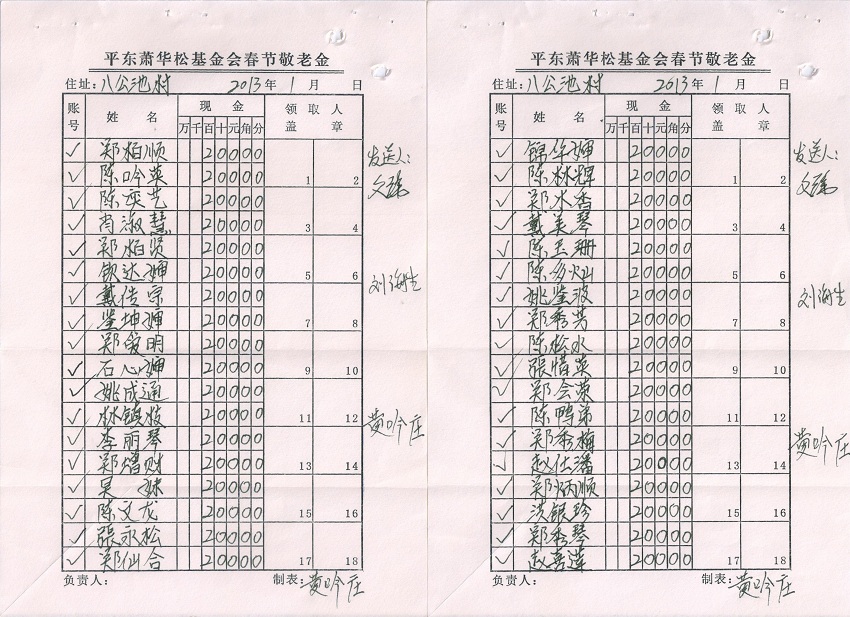 平东萧华松基金会春节敬老金
住址：八公池村 2013年1月 日
账号 姓名 现金 领取人盖章
万千百十元角分
✓ 郑柏顺 20000
✓ 陈吟英 20000 1 2
✓ 陈奕艺 20000
✓ 肖淑慧 20000 3 4
✓ 郑柏贤 20000
✓ 钦达婶 20000 5 6
✓ 戴传宗 20000
✓ 鉴坤婶 20000 7 8
✓ 郑俊明 20000
✓ 石心婶 20000 9 10
✓ 姚成通 20000
✓ 林镇枝 20000 11 12
✓ 李丽琴 20000
✓ 郑增财 20000 13 14
✓ 吴妹 20000
✓ 陈文龙 20000 15 16
✓ 張永松 20000
✓ 郑仙合 20000 17 18
发送人：
刘海生
黄吟庄
负责人： 制表：黄吟庄
平东萧华松基金会春节敬老金
住址：八公池村 2013年1月 日
账号 姓名 现金 领取人盖章
万千百十元角分
✓ 锦华婶 20000
✓ 陈林辉 20000 1 2
✓ 郑水香 20000
✓ 戴美琴 20000 3 4
✓ 陈玉珊 20000
✓ 陈多灿 20000 5 6
✓ 姚鉴波 20000
✓ 郑秀芳 20000 7 8
✓ 陈松水 20000
✓ 張惜英 20000 9 10
✓ 郑会荣 20000
✓ 陈鸭弟 20000 11 12
✓ 郑秀梅 20000
✓ 赵仕潘 20000 13 14
✓ 郑炳顺 20000
✓ 沈银珍 20000 15 16
✓ 郑秀琴 20000
✓ 赵喜莲 20000 17 18
发送人：
刘海生
黄吟庄
负责人： 制表：黄吟庄